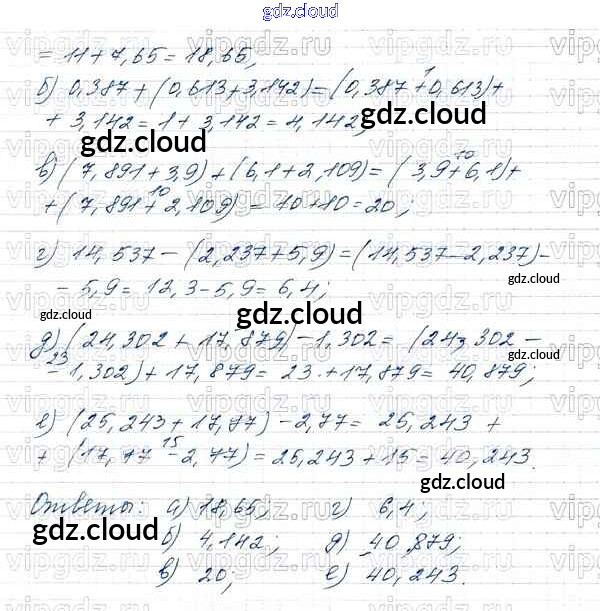 gdz.cloud
= 11 + 7,65 = 18,65;
б) 0,387 + (0,613 + 3,142) = (0,387 + 0,613) +
1
+ 3,142 = 1 + 3,142 = 4,142;
в) (7,891 + 3,9) + (6,1 + 2,109) = (3,9 + 6,1) +
10
+ (7,891 + 2,109) = 10 + 10 = 20;
10
г) 14,537 - (2,237 + 5,9) = (14,537 - 2,237) -
- 5,9 = 12,3 - 5,9 = 6,4;
д) (24,302 + 17,879) - 1,302 = (24,302 -
23
- 1,302) + 17,879 = 23 + 17,879 = 40,879;
е) (25,243 + 17,77) - 2,77 = 25,243 +
+ (17,77 - 2,77) = 25,243 + 15 = 40,243.
15
Ответы: а) 18,65; г) 6,4;
б) 4,142; д) 40,879;
в) 20; е) 40,243.
gdz.cloud
gdz.cloud
gdz.cloud
gdz.cloud
gdz.cloud
gdz.cloud
gdz.cloud
gdz.cloud
gdz.cloud
vipgdz.ru